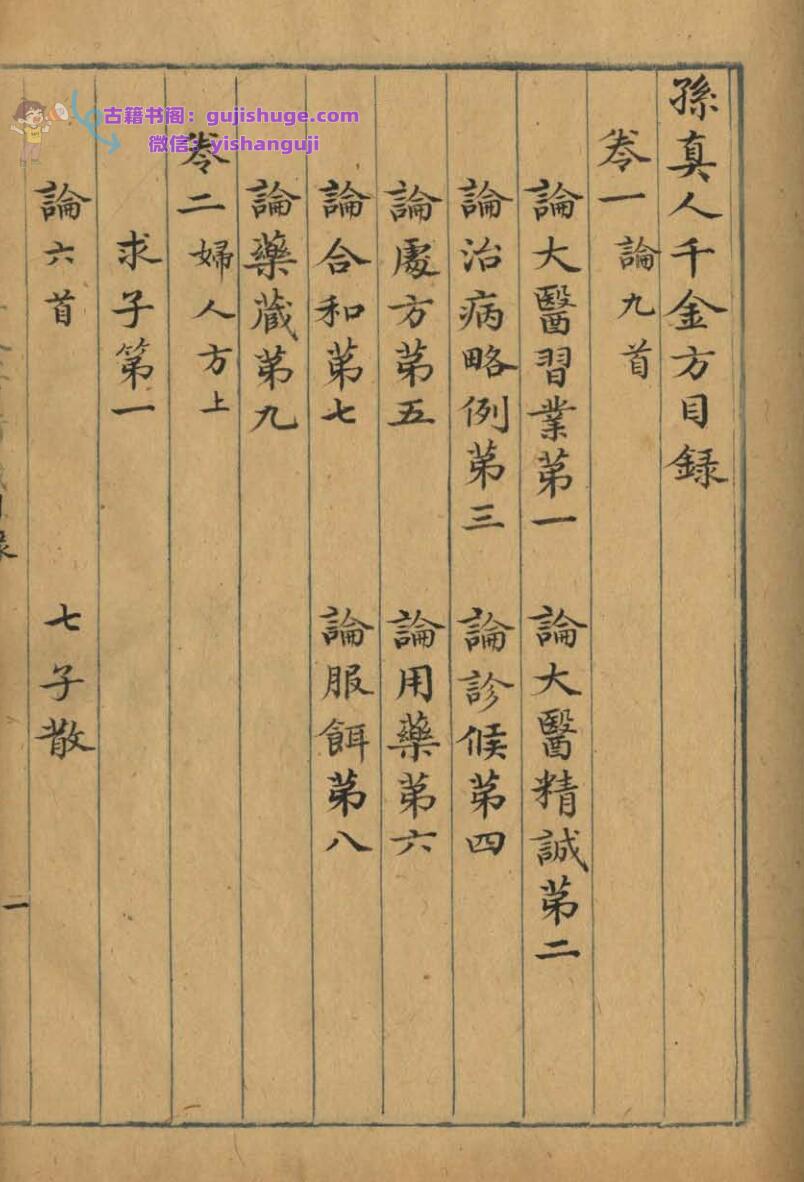 孫真人千金方目録
卷一 論九首
論大醫習業第一 論大醫精誠第二
論治病略例第三 論診候第四
論處方第五 論用藥第六
論合和第七 論服餌第八
論藥藏第九
卷二 婦人方上
求子第一
論六首 七子散
一
古籍书阁：gujishuge.com
微信：yishanguji